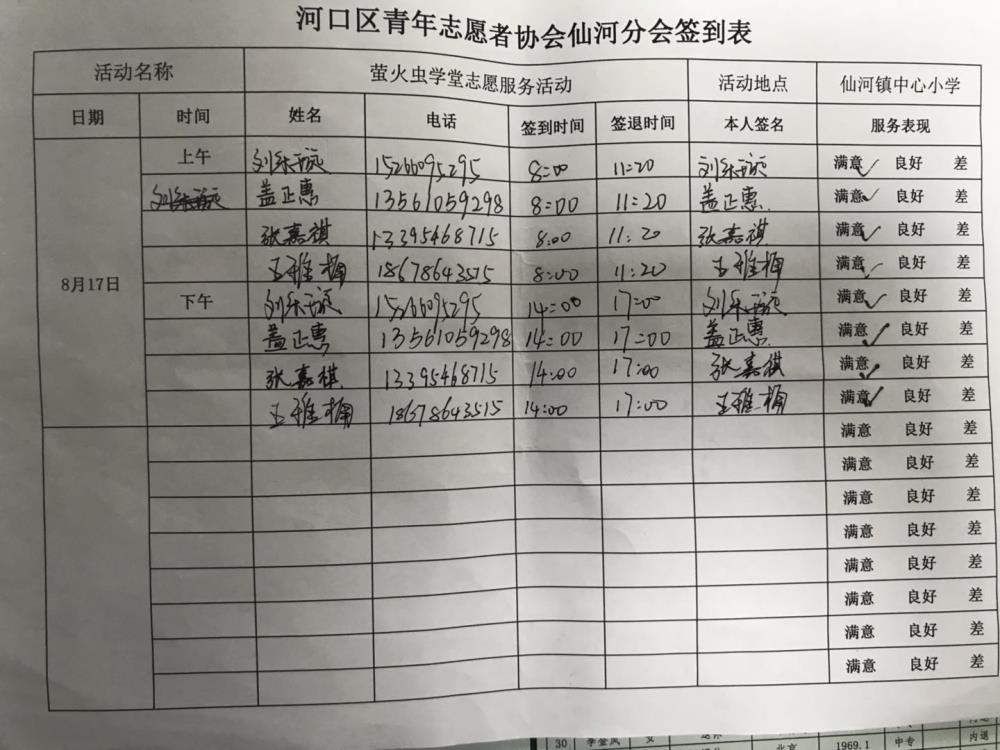 河口区青年志愿者协会仙河分会签到表
活动名称 萤火虫学堂志愿服务活动 活动地点 仙河镇中心小学
日期 时间 姓名 电话 签到时间 签退时间 本人签名 服务表现
上午 15266095295 8:00 11:20 满意✓ 良好 差
盖正惠 13561059298 8:00 11:20 盖正惠 满意✓ 良好 差
张嘉祺 13395468715 8:00 11:20 张嘉祺 满意✓ 良好 差
8月17日 王雅楠 18678643515 8:00 11:20 王雅楠 满意✓ 良好 差
下午 15266095295 14:00 17:00 满意✓ 良好 差
盖正惠 13561059298 14:00 17:00 盖正惠 满意✓ 良好 差
张嘉祺 13395468715 14:00 17:00 张嘉祺 满意✓ 良好 差
王雅楠 18678643515 14:00 17:00 王雅楠 满意✓ 良好 差
满意 良好 差
满意 良好 差
满意 良好 差
满意 良好 差
满意 良好 差
满意 良好 差
满意 良好 差
满意 良好 差
30 女 退休 北京 1969.1 中专 内退